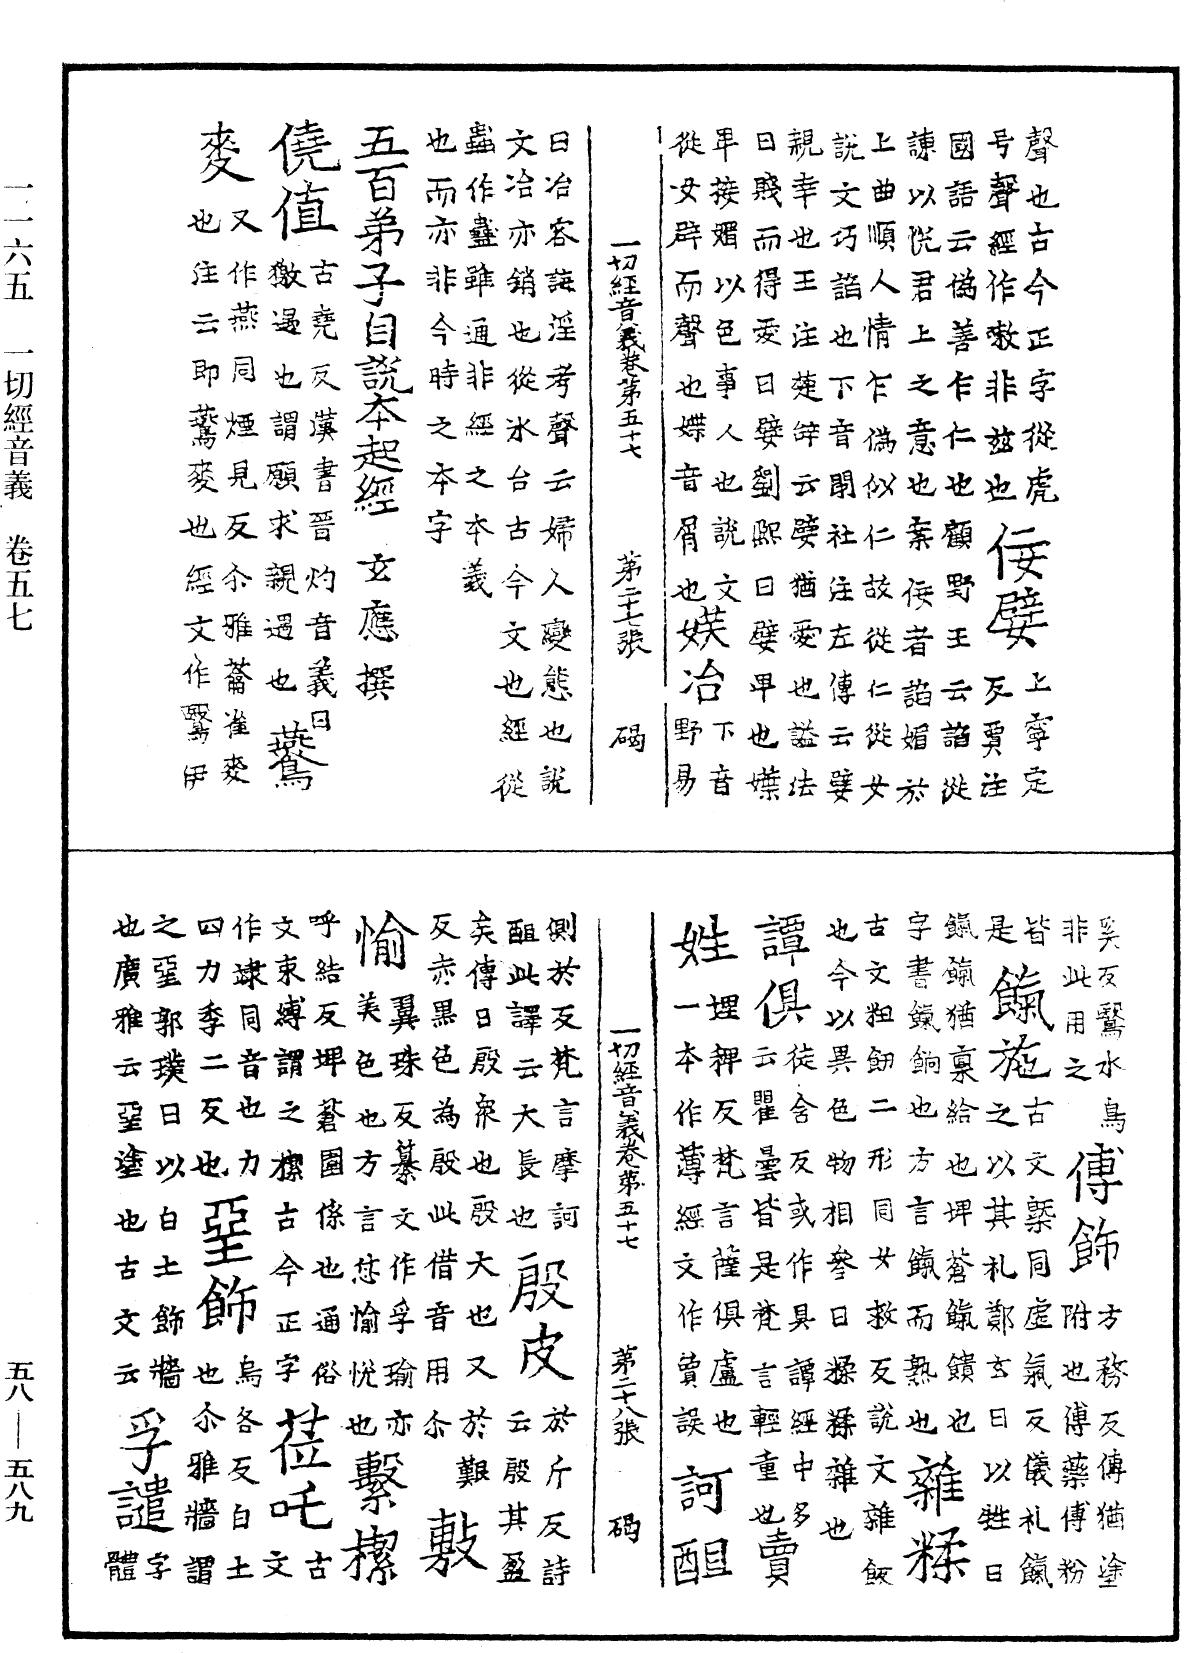 聲也古今正字從虎
号聲經作㗛非玆也佞嬖上寧定
國語云僞善乍仁也顧野王云諂從
諫以悅君上之意也案佞者諂媚於
上曲順人情乍僞似仁故從仁從女
說文巧諂也下音閉杜注左傳云嬖
親幸也王注楚辞云嬖猶愛也謚法
曰賤而得愛曰嬖劉熙曰嬖卑也媟
卑接媚以色事人也說文
從女辟而聲也媟音屑也媄冶下音
野易
一切經音義卷第五十七 第二十七張 碣
曰冶容誨淫考聲云婦人變態也說
文冶亦銷也從冰台古今文也經從
蟲作蠱雖通非經之本義
也而亦非今時之本字
五百弟子自說本起經 玄應撰
僥值古堯反漢書晉灼音義曰
徼遇也謂願求親遇也鷰
麥又作燕同煙見反尒雅蘥雀麥
也注云即鷰麥也經文作鷖伊
奚反鷖水鳥
非此用之傅飾方務反傅猶塗
附也傅藥傅粉
皆是餼施古文槩同虛氣反儀礼餼
之以其礼鄭玄曰以牲曰
餼餼猶稟給也埤蒼餼饋也
字書餼餉也方言餼而熟也雜糅
古文粈𩚖二形同女救反說文雜飯
也今以異色物相參曰糅糅雜也
譚俱徒含反或作具譚經中多
云瞿曇皆是梵言輕重也賣
姓埋稗反梵言薩俱盧也
一本作薄經文作賣誤訶䣯
側於反梵言摩訶
䣯此譯云大長也殷皮於斤反詩
云殷其盈
矣傳曰殷衆也殷大也又於艱
反赤黑色為殷此借音用尒𢾾
愉翼珠反纂文作孚瑜亦
美色也方言怤愉悅也繫㯻
呼結反埤蒼圍係也通俗
文束縛謂之㯻古今正字莅吒古文
作逮同音也力烏各反白土
四力季二反也堊飾也尒雅牆謂
之堊郭璞曰以白土飾牆孚譴字
也廣雅云堊塗也古文云體
一切經音義卷第五十七 第二十八張 碣
一一六五 一切經音義 卷五七
五八—五八九